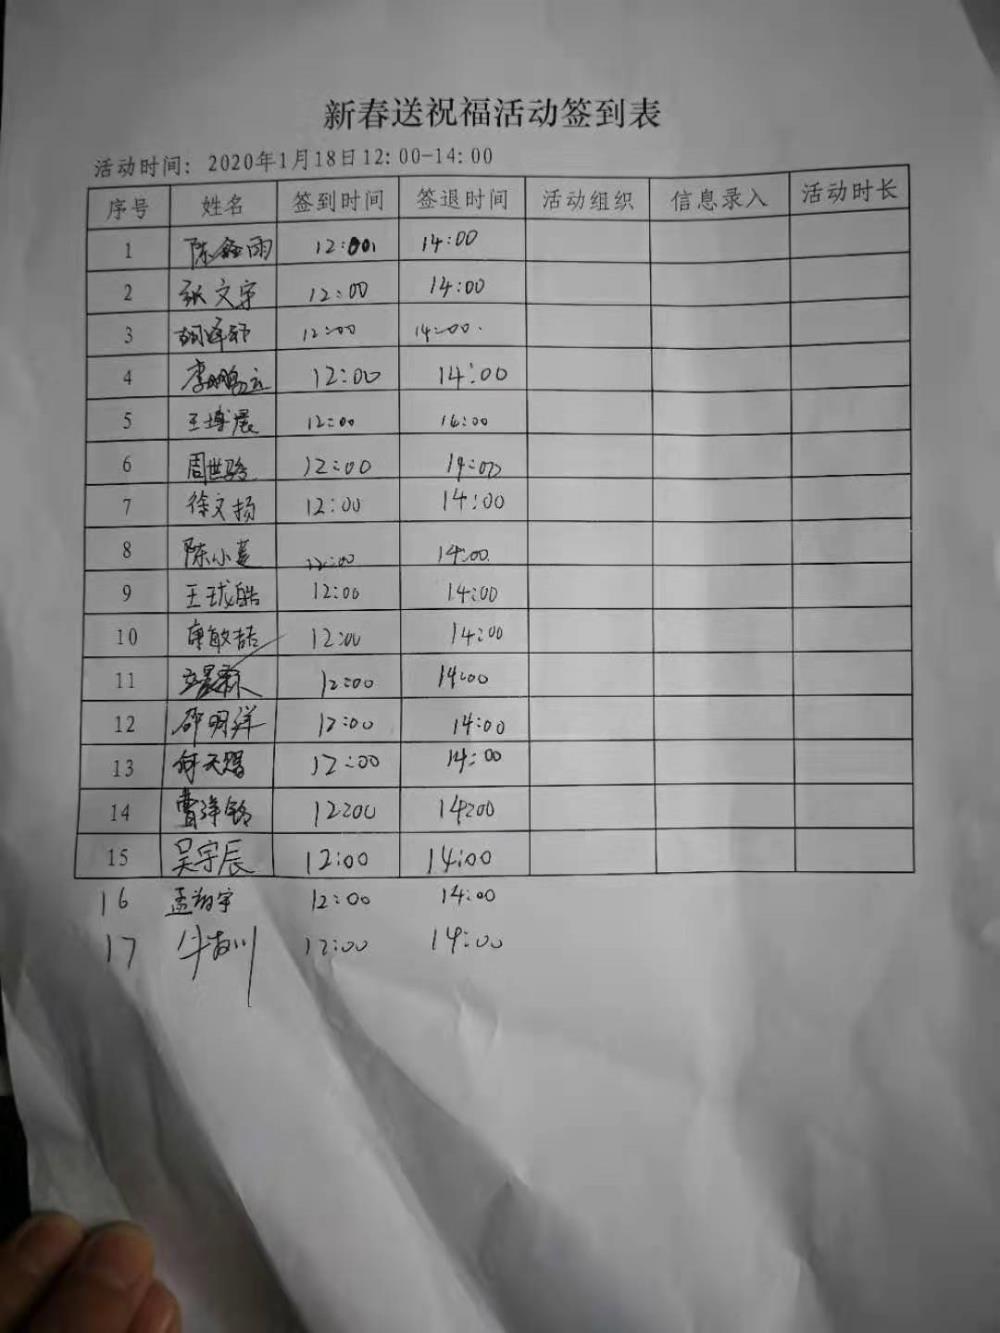 新春送祝福活动签到表
活动时间: 2020年1月18日12:00-14:00
序号 姓名 签到时间 签退时间 活动组织 信息录入 活动时长
1 陈鑫雨 12:00 14:00
2 张文宇 12:00 14:00
3 12:00 14:00.
4 李鹏 12:00 14:00
5 王博晨 12:00 14:00
6 周世 12:00 14:00
7 徐文扬 12:00 14:00
8 陈小 12:00 14:00.
9 王珑皓 12:00 14:00
10 康敏喆 12:00 14:00
11 12:00 14:00
12 邵明洋 12:00 14:00
13 何天赐 12:00 14:00
14 曹洋铭 12:00 14:00
15 吴宇辰 12:00 14:00
16 孟 宇 12:00 14:00
17 牛 川 12:00 14:00